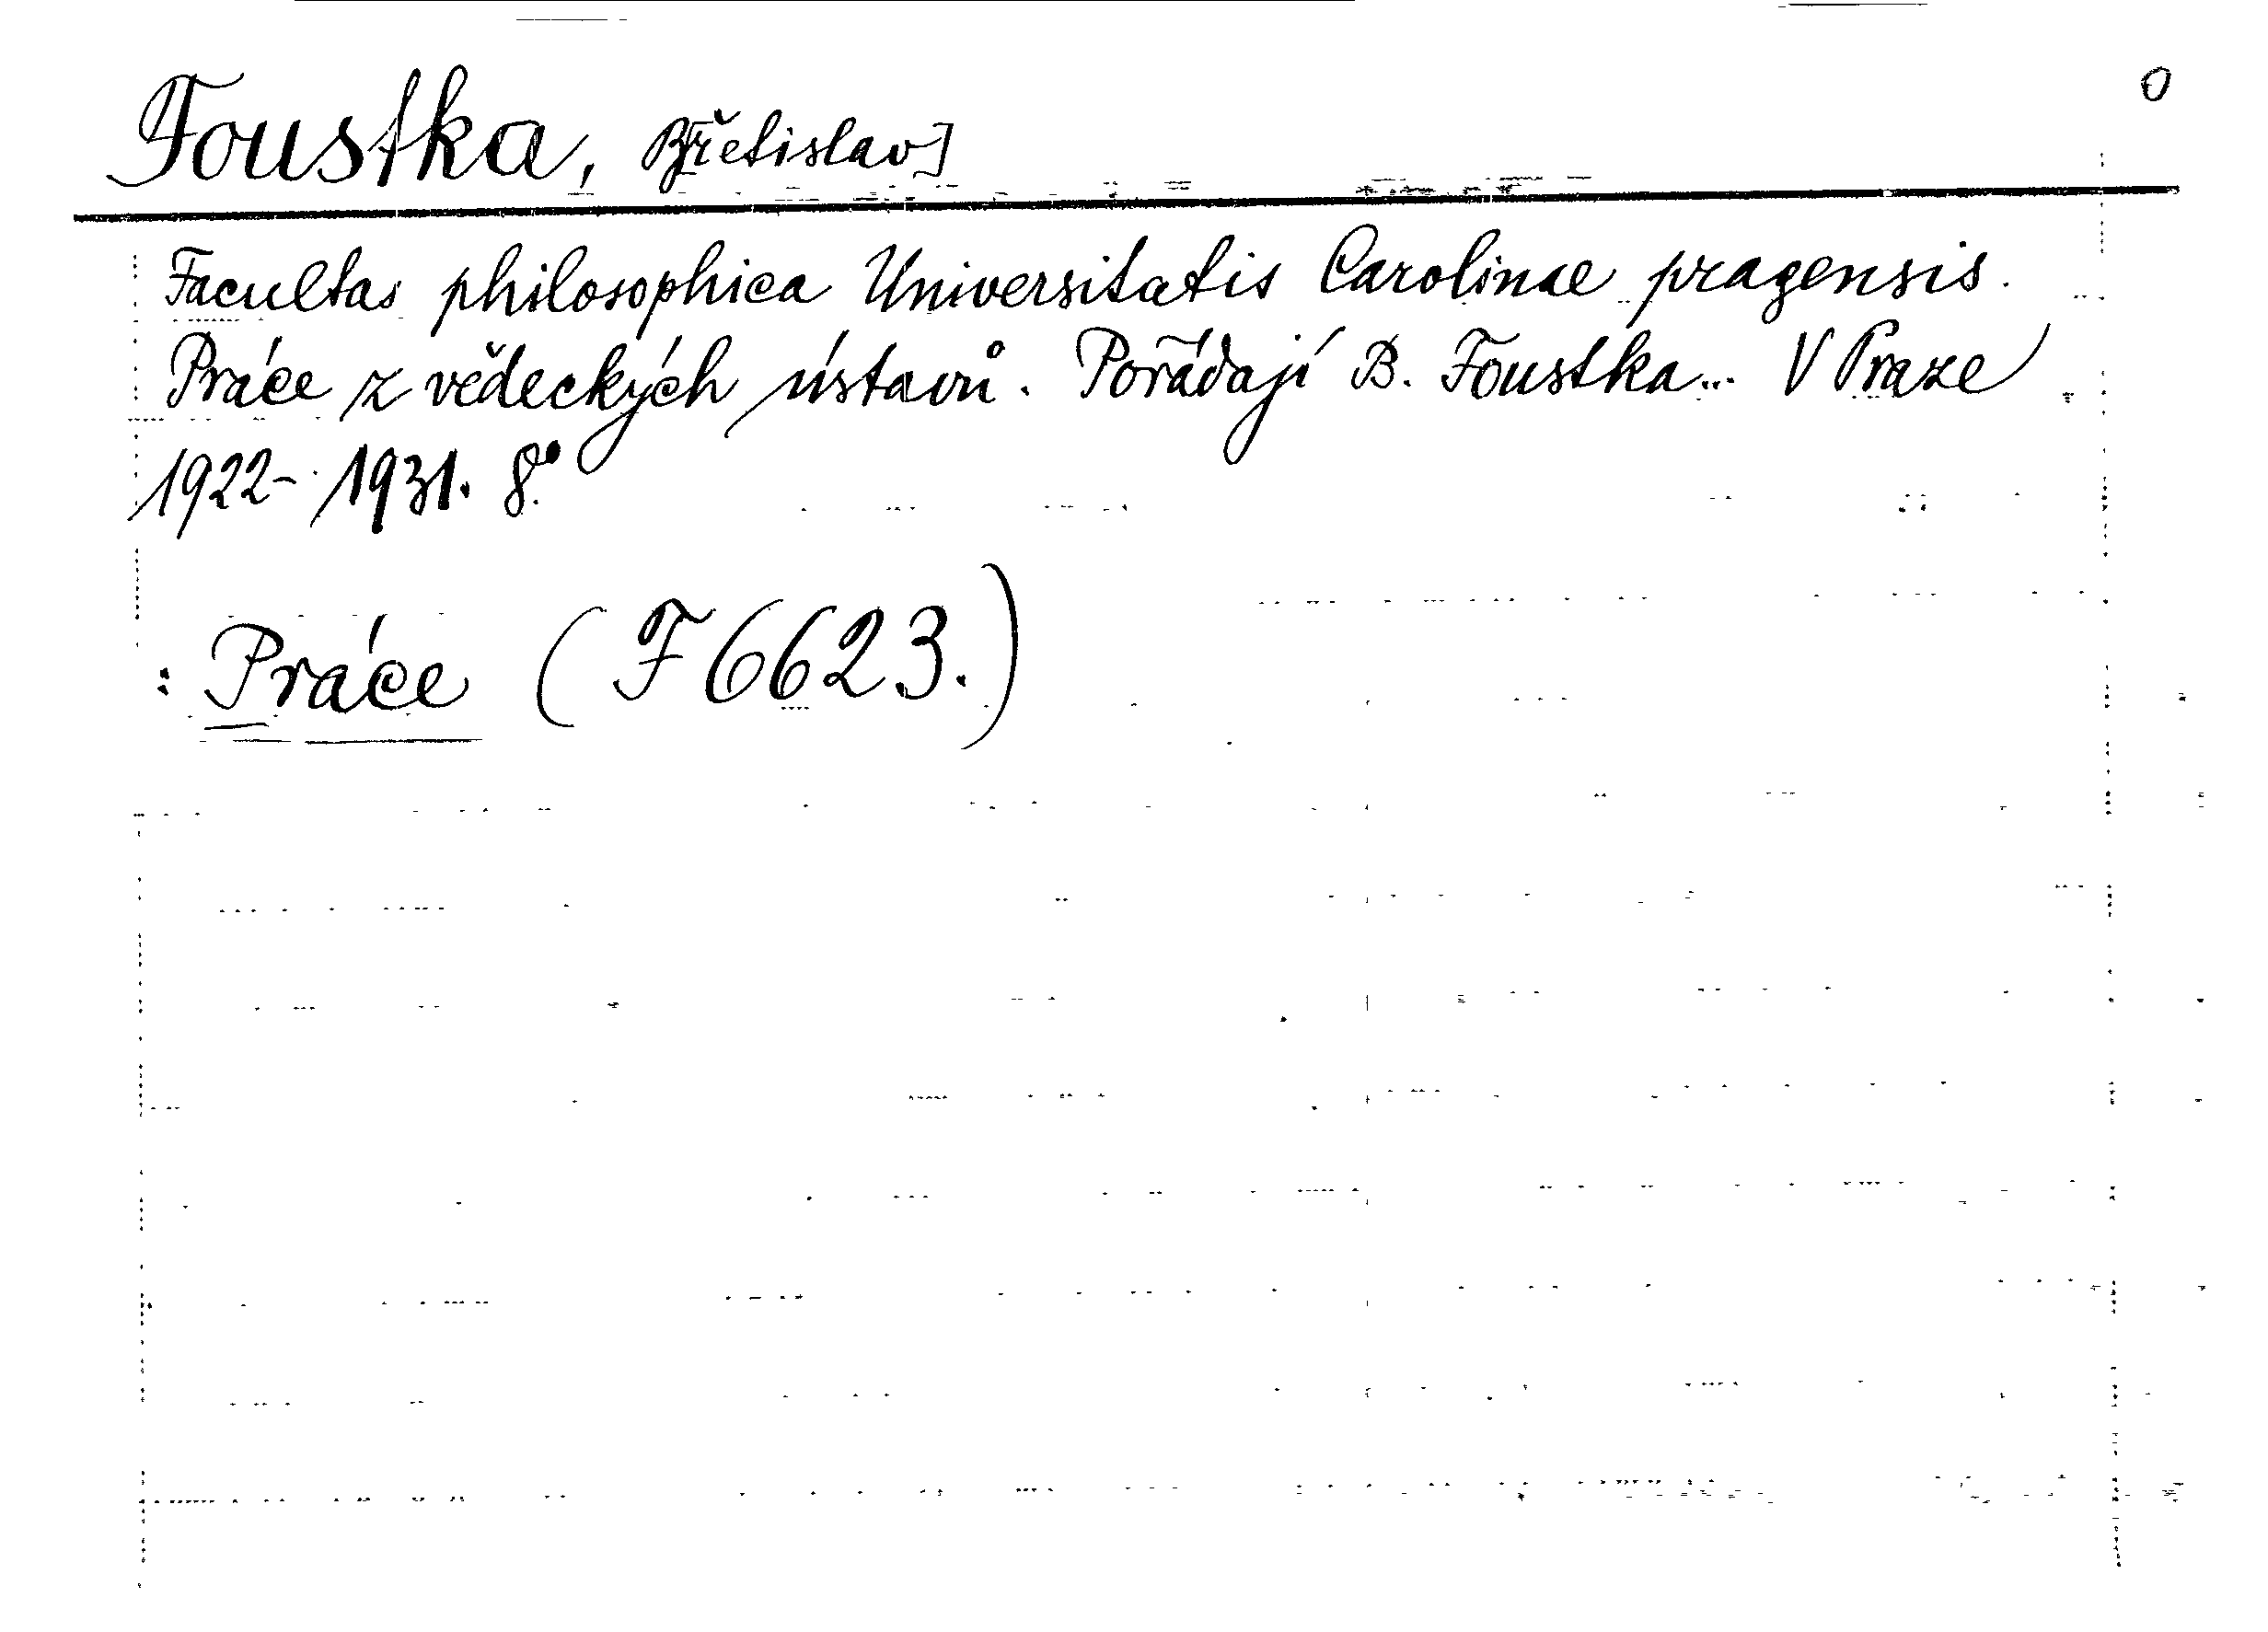 0
Foustka, B[řetislav]
Facultas philosophica Universitatis Carolinae pragensis.
Práce z vědeckých ústavů. Pořádají B. Foustka... V Praze
1922-1931. 8.°
: Práce (F 6623.)